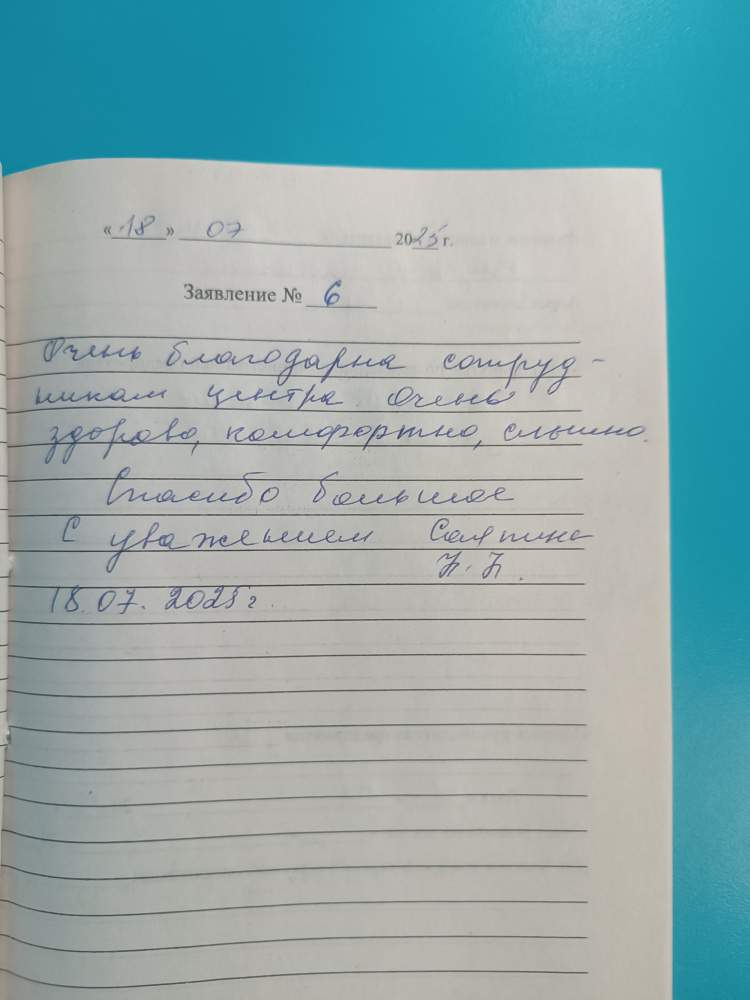 «18» 07 2025 г.
Заявление № 6
Очень благодарна сотруд-
никам центра очень
здорово, комфортно, слышно.
Спасибо большое
С уважением Саяпина
18.07.2025 г.